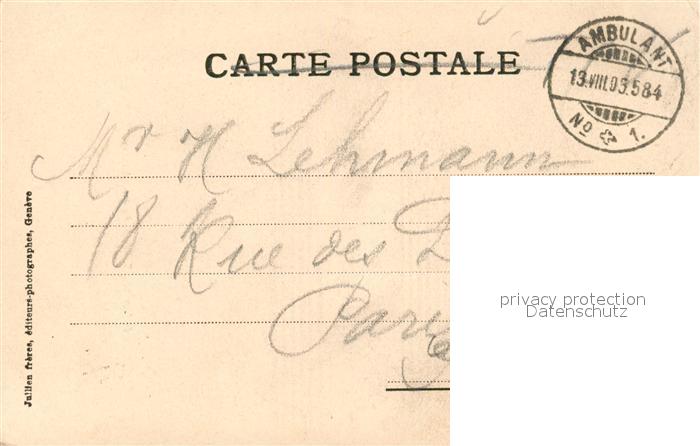 CARTE POSTALE
AMBULANT
13.VIII.03.584
No 1.
Mr H Lehmann
18 Rue des
Paris
privacy protection
Datenschutz
Jullien frères, éditeurs-photographes, Genève